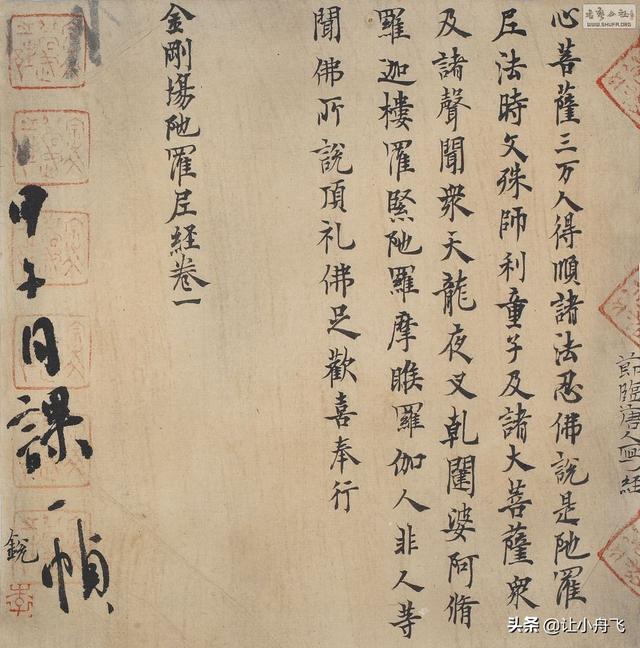 心菩薩三万人得順諸法忍佛說是陁羅
尼法時文殊師利童子及諸大菩薩衆
及諸聲聞衆天龍夜叉乹闥婆阿脩
羅迦樓羅緊陁羅摩睺羅伽人非人等
聞佛所說頂礼佛足歡喜奉行
金剛場陁羅尼經卷一
甲午日課一幀
銳
節臨唐人寫經
WWW.SHUFA.ORG
头条 @让小舟飞